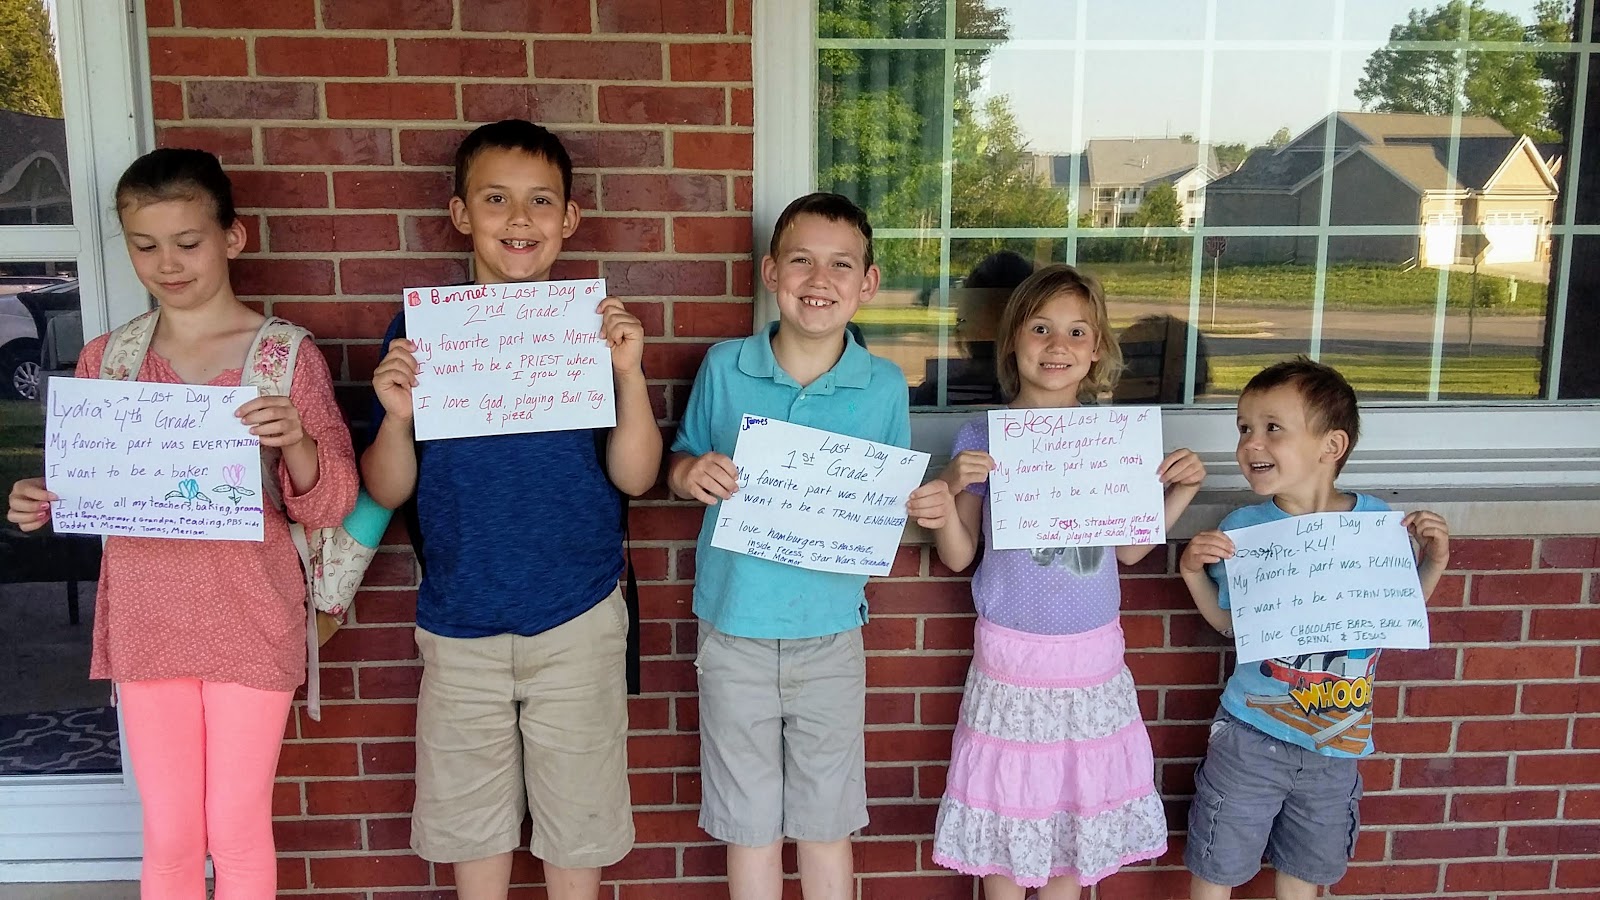 Lydia's → Last Day of
4th Grade!
My favorite part was EVERYTHING
I want to be a baker.
I love all my teachers, baking, grammy,
Bert & Papa, Marmor & Grandpa, reading, PBS kids
Daddy & Mommy, Tomas, Meriam.
B Bennet's Last Day of
2nd Grade!
My favorite part was MATH.
I want to be a PRIEST when
I grow up.
I love God, playing Ball Tag,
& pizza
James
Last Day of
1st Grade!
My favorite part was MATH
I want to be a TRAIN ENGINEER
I love hamburgers, SAUSAGE,
inside recess, Star Wars, Grandma
Bert, Marmor
TeResA Last Day of
Kindergarten!
My favorite part was math
I want to be a MOM
I love Jesus, strawberry pretzel
salad, playing at school, Mommy &
Daddy.
Last Day of
Pre-K4!
My favorite part was PLAYING
I want to be a TRAIN DRIVER
I love CHOCOLATE BARS, BALL TAG,
BRYNN, & JESUS
WHOO